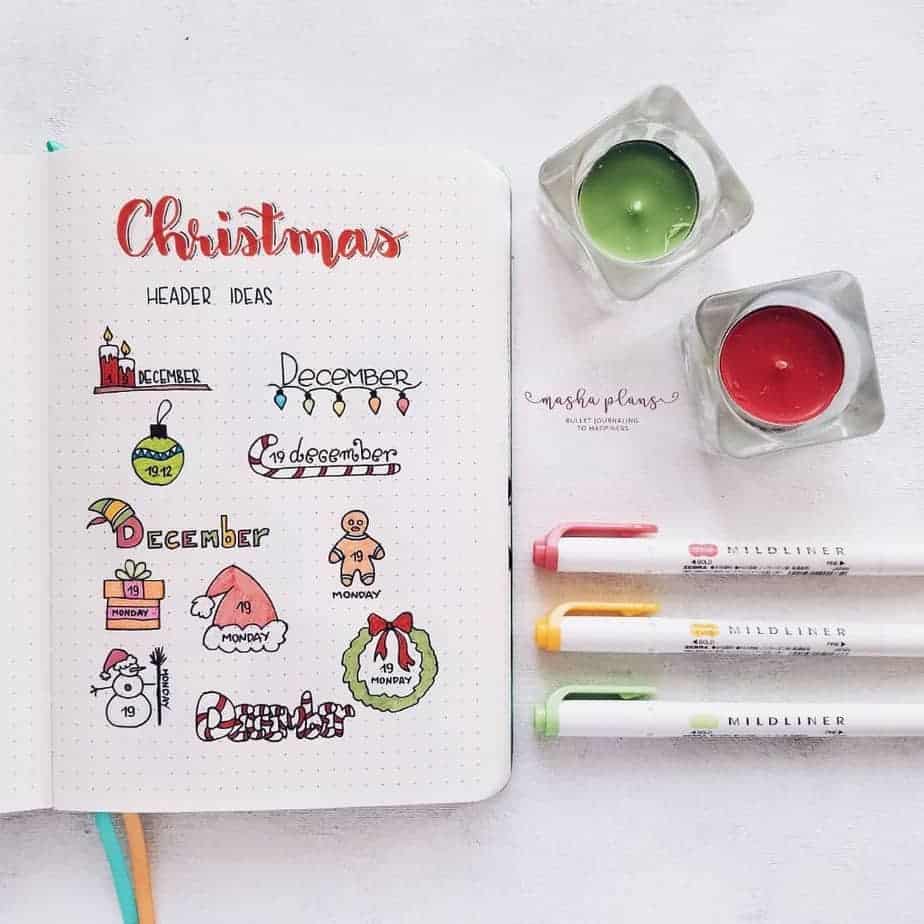 Christmas
HEADER IDEAS
DECEMBER
DECEMBER
19.12
19 december
December
19
MONDAY
19
MONDAY
19
MONDAY
19
MONDAY
19
MONDAY
December
masha plans
BULLET JOURNALING
TO HAPPINESS
MILDLINER
◀BOLD FINE▶
MILDLINER
◀BOLD FINE▶
MILDLINER
◀BOLD FINE▶